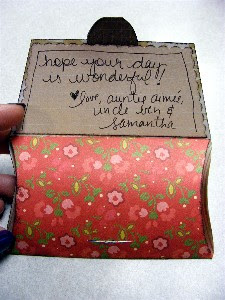 hope your day
is wonderful!!
♥ love, auntie aimée,
uncle ben &
samantha